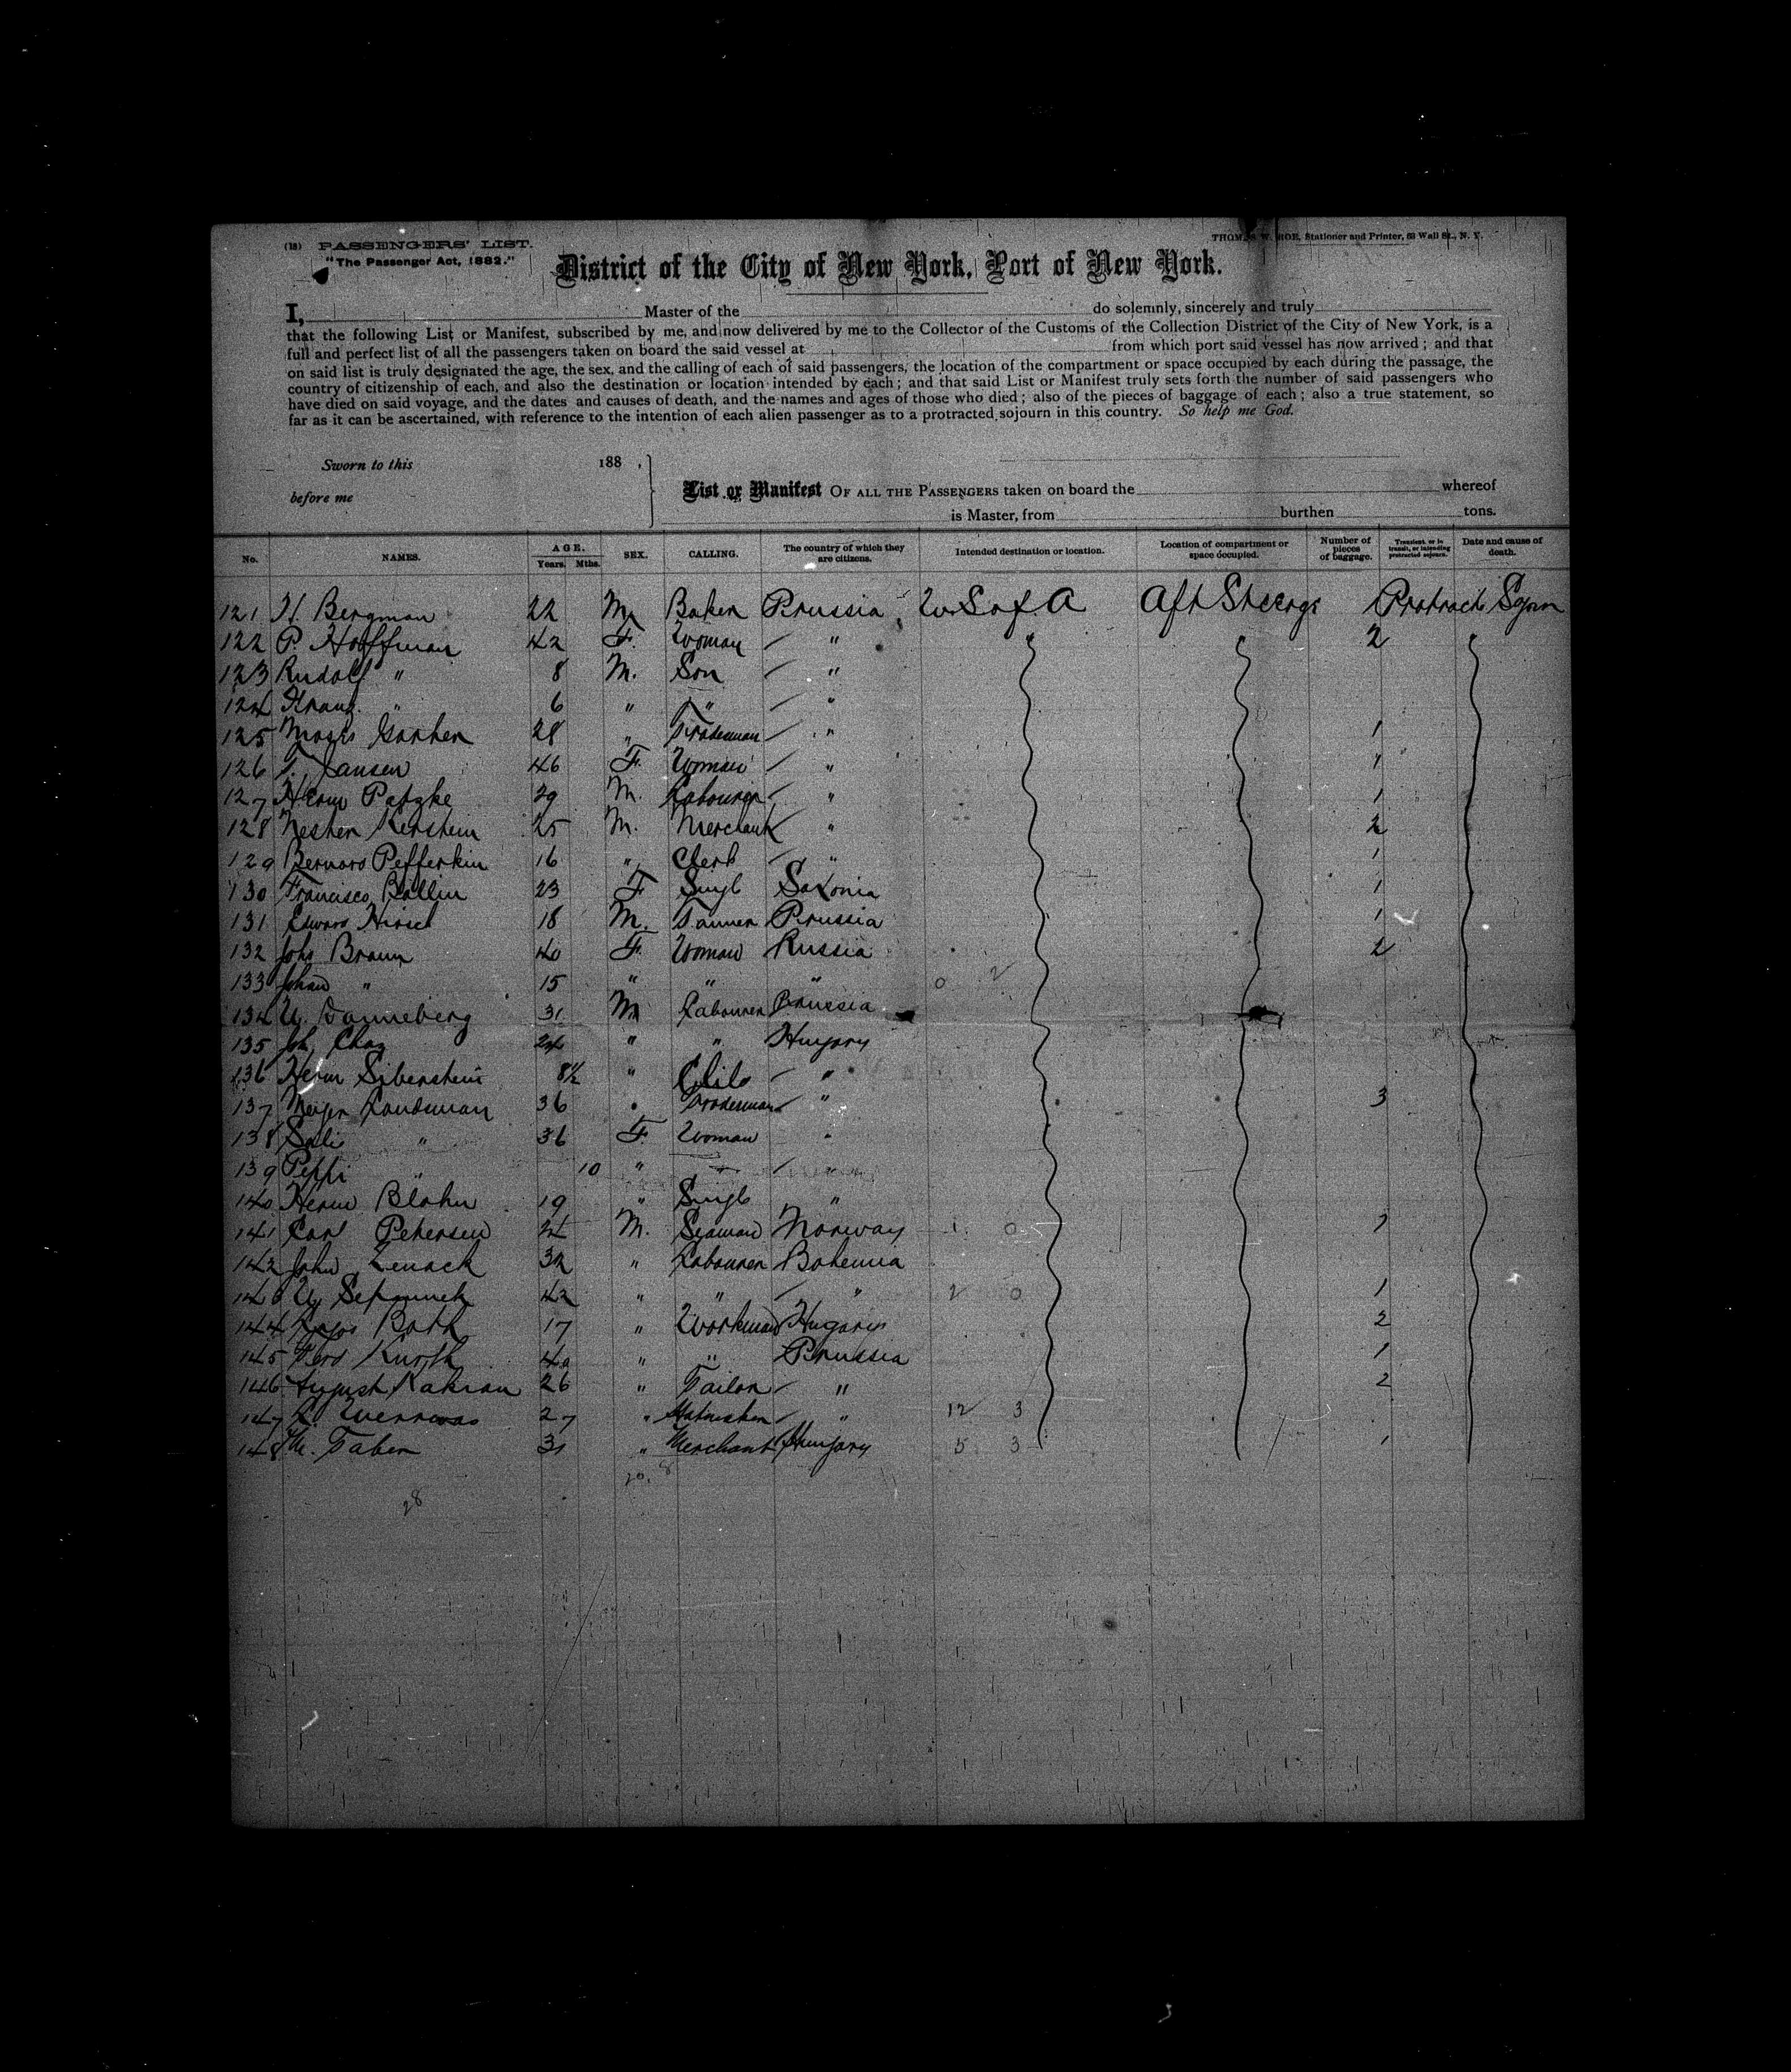 (18) PASSENGERS' LIST.
THOMAS W. ROE, Stationer and Printer, 53 Wall St., N. Y.
"The Passenger Act, 1882."
District of the City of New York, Port of New York.
I, Master of the do solemnly, sincerely and truly
that the following List or Manifest, subscribed by me, and now delivered by me to the Collector of the Customs of the Collection District of the City of New York, is a
full and perfect list of all the passengers taken on board the said vessel at from which port said vessel has now arrived; and that
on said list is truly designated the age, the sex, and the calling of each of said passengers, the location of the compartment or space occupied by each during the passage, the
country of citizenship of each, and also the destination or location intended by each; and that said List or Manifest truly sets forth the number of said passengers who
have died on said voyage, and the dates and causes of death, and the names and ages of those who died; also of the pieces of baggage of each; also a true statement, so
far as it can be ascertained, with reference to the intention of each alien passenger as to a protracted sojourn in this country. So help me God.
Sworn to this 188 ,
before me
List or Manifest OF ALL THE PASSENGERS taken on board the whereof
is Master, from burthen tons.
No. NAMES. AGE. Years. Mths. SEX. CALLING. The country of which they are citizens. Intended destination or location. Location of compartment or space occupied. Number of pieces of baggage. Transient, or in transit, or intending protracted sojourn. Date and cause of death.
121 H. Bergman 22 M Baker Prussia U.S. of A Aft Steerage Protract Sojourn
122 P. Hoffman 42 F. Woman " 2
123 Rudolf " 8 M. Son "
124 Franz " 6 " " "
125 Moses 28 " Tradesman " 1
126 Jansen 46 F. Woman " 1
127 Herm Patzke 29 M. Labourer " 1
128 Kerstein 25 M. Merchant " 2
129 Bernard Pefferkin 16 " Clerk " 1
130 Francisca Ballin 23 F Singl Saxonia 1
131 Edward Hirsch 18 M. Tanner Prussia 1
132 Joha Braun 40 F. Woman Russia 2
133 Johan " 15 " " " 0 2
134 U. Danneberg 31 M Labourer Prussia
135 Joh 24 " " Hungary
136 Herm Siberstein 8½ " Child "
137 Meyer Landsman 36 " Tradesman " 3
138 Sali " 36 F. Woman "
139 Peppi " 10 " "
140 Herm Blahn 19 " Singl "
141 Carl Petersen 24 M. Seaman Norway 1 0 1
142 John Zenack 32 " Labourer Bohemia
143 42 " " " 2 0 1
144 Lajos Roth 17 " Workman Hugaria 2
145 Ferd Kurth 40 " " Prussia 1
146 August Kakrau 26 " Tailor " 2
147 27 " " 12 3
148 M. Taber 31 " Merchant Hungary 5 3 1
20. 8
28